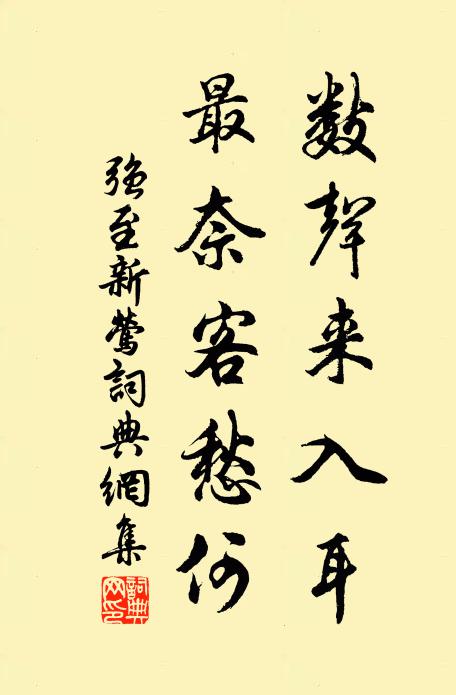 數聲来入耳
最奈客愁何
強至新鶯詞典網集
詞典网印